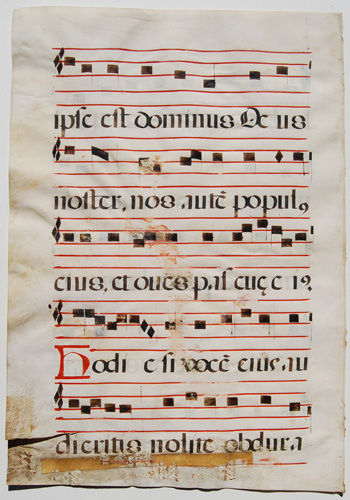 ipse est dominus De us
noster, nos autē populꝰ
eius, et oues pascuę e iꝰ
Hodi e si vocē eius au
dieritis nolite obdura